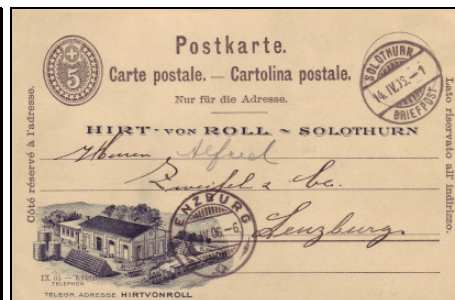 5
Postkarte.
Carte postale. — Cartolina postale.
Nur für die Adresse.
SOLOTHURN
14.IV.06.-1
BRIEFPOST
Côté réservé à l'adresse.
Lato riservato all' indirizzo.
HIRT-VON ROLL ~ SOLOTHURN
Herren Alfred
Zweifel & Co.
Lenzburg
LENZBURG
IV.06.-6
IX 05
TELEPHON
TELEGR. ADRESSE HIRTVONROLL